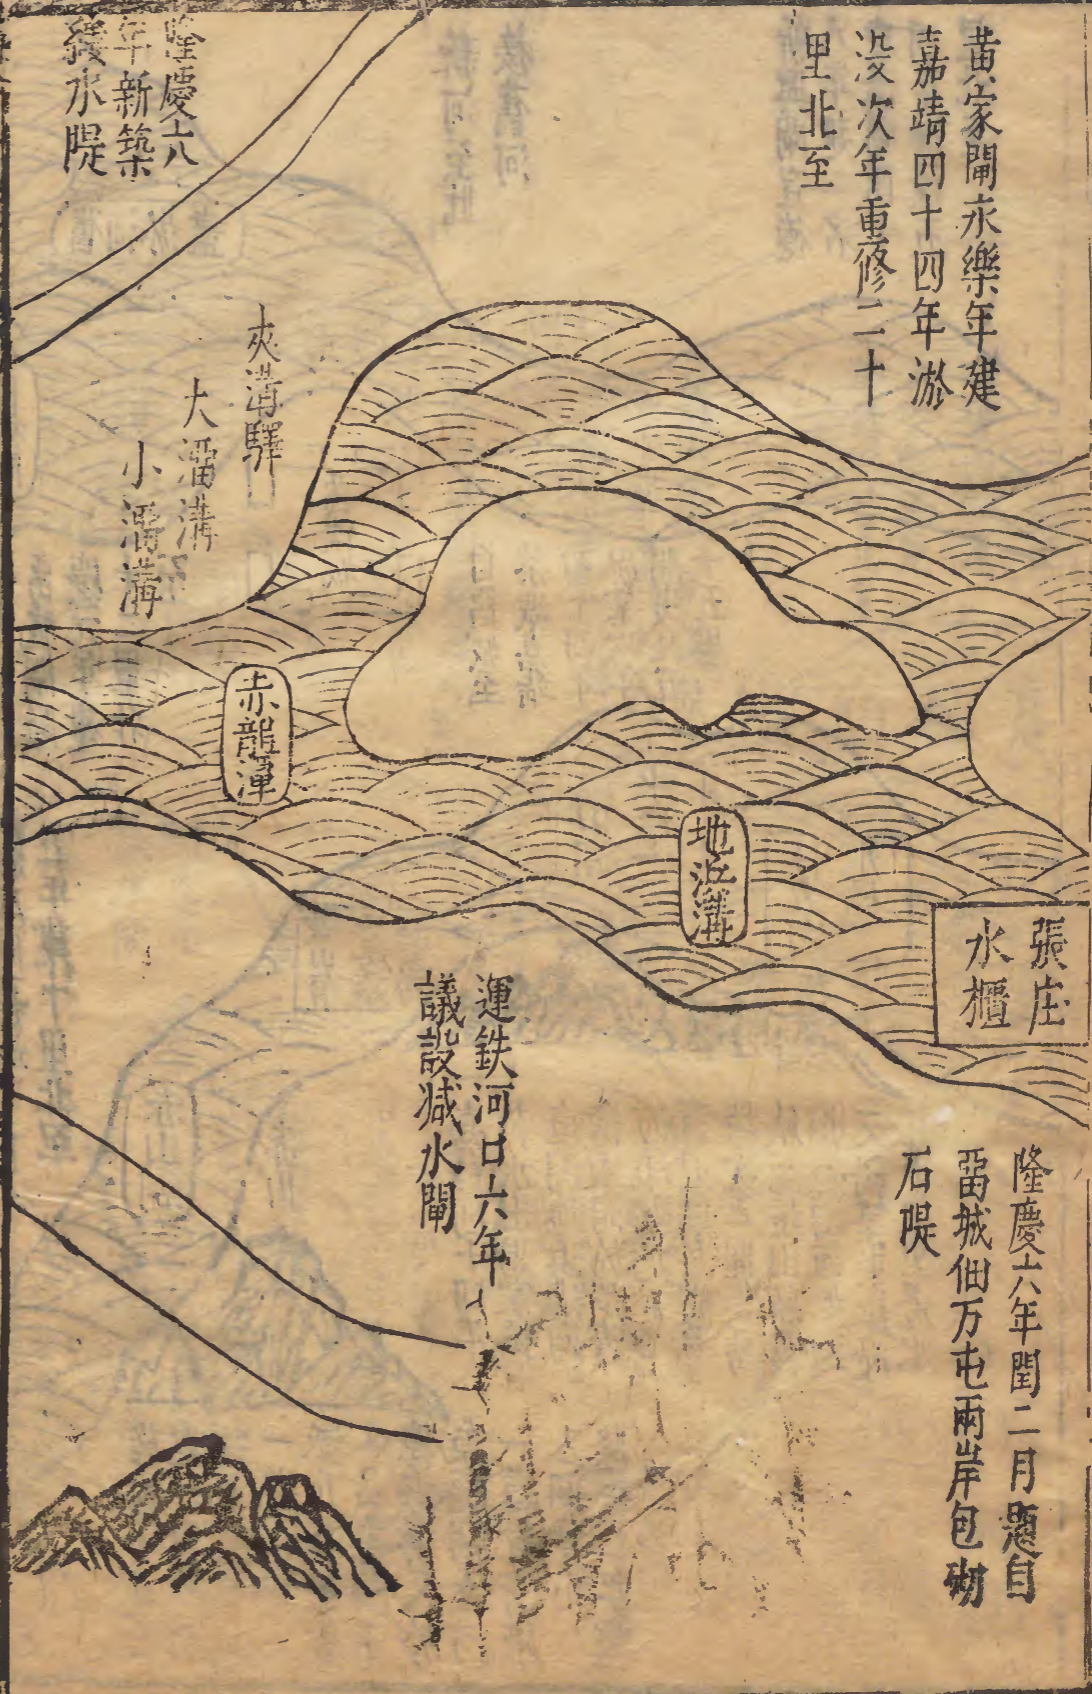 黄家閘永樂年建
嘉靖四十四年淤
没次年重修二十
里北至
隆慶六
年新築
縷水隄
夾溝驛
大溜溝
小溜溝
赤龍潭
地浜溝
張庄
水櫃
運鉄河口六年
議設减水閘
隆慶六年閏二月題自
留城佃万屯兩岸包砌
石隄